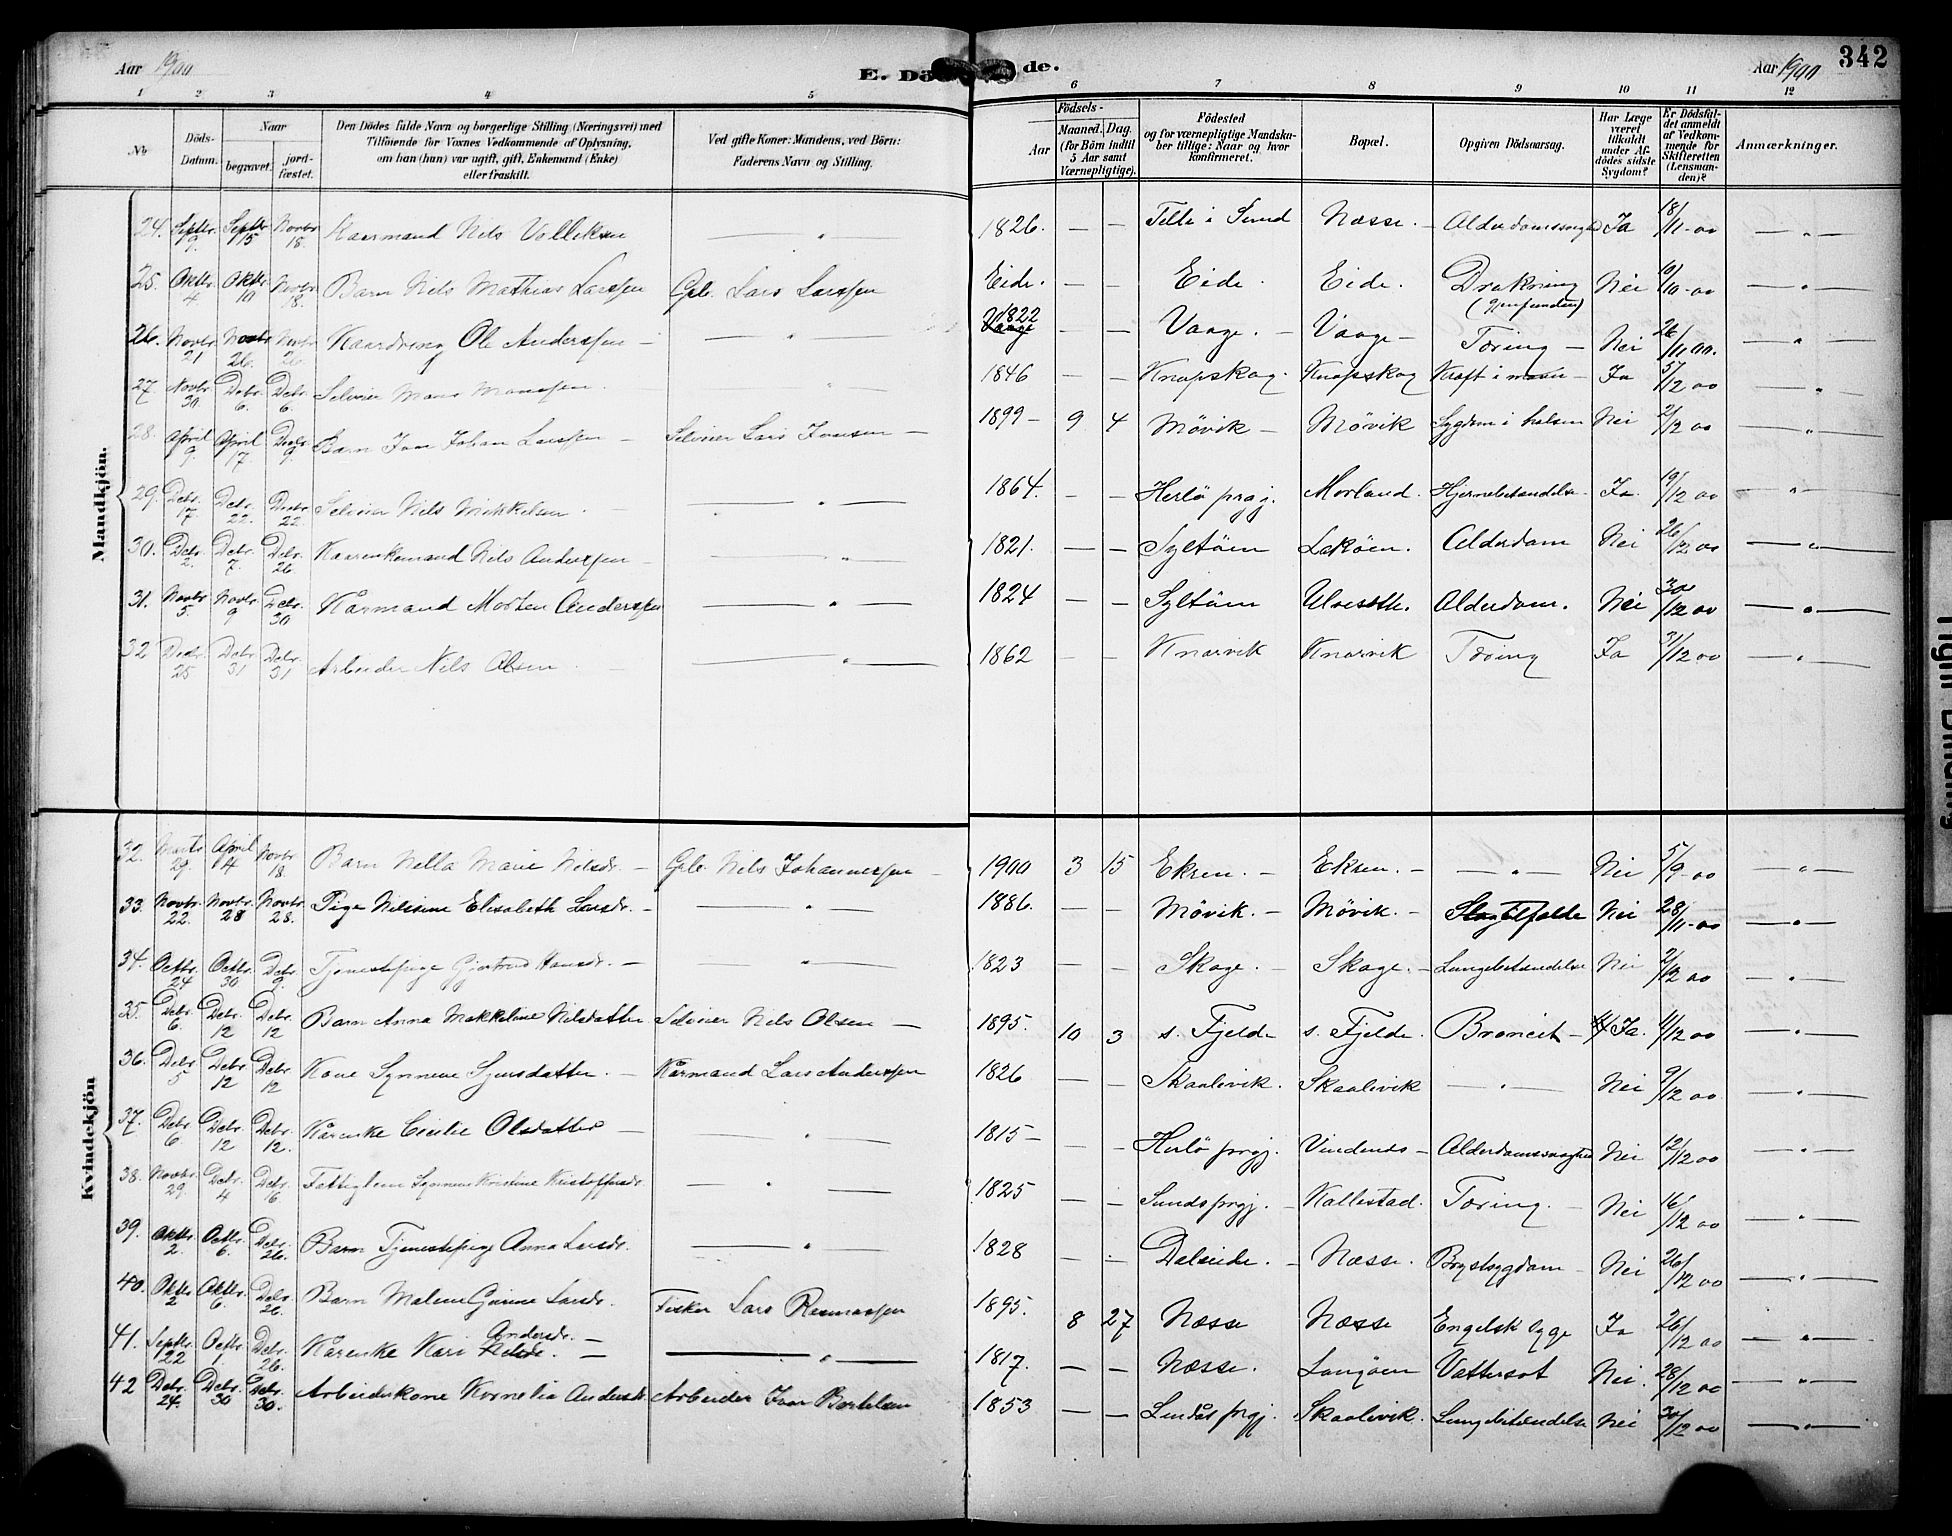 Aar 1900
E. Dö de.
Aar 1900
342
1 2 3 4 5 6 7 8 9 10 11 12
No
Döds-Datum.
Naar
begravet.
jord-fæstet.
Den Dödes fulde Navn og borgerlige Stilling (Næringsvei) med
Tilföiende for Voxnes Vedkommende af Oplysning,
om han (hun) var ugift, gift, Enkemand (Enke)
eller fraskilt.
Ved gifte Koner: Mandens, ved Börn:
Faderens Navn og Stilling.
Födsels-
Aar
Maaned. Dag.
(for Börn indtil
5 Aar samt
Værnepligtige).
Födested
og for værnepligtige Mandska-
ber tillige: Naar og hvor
konfirmeret.
Bopæl.
Opgiven Dödsaarsag.
Har Læge
været
tilkaldt
under Af-
dödes sidste
Sygdom?
Er Dödsfal-
det anmeldt
af Vedkom-
mende for
Skifteretten
(Lensman-
den)?
Anmærkninger.
Mandkjön.
24. Septbr. 9. Septbr 15 Novbr 18. Kaarmand Nils — " — 1826. — — Telle i Sund Næsse. Ja 18/11-00 — " —
25. Oktbr. 4 Oktbr. 10 Novbr. 18. Barn Nils Mathias Larssen Gbr. Lars Larssen Eide. — — Eide. Eide. Drukning Nei 10/10-00 — " —
26. Novbr. 21 Novbr 26. Novbr 26. Ole Anderssen — — " — 1822 — — Vaage. — Vaage — Tæring — Nei 26/11 00. — " —
27. Novbr. 30. Debr. 6. Debr. 6. Selveier Mons Monssen. " 1846 — — Knapskog. Knapskog Kræft i maven — Ja 5/12 00 — " —
28. April 9. April 17 Decbr. 9. Barn Johan Larssen — Selveier Lars — 1899 — 9 4 Mövik — Mövik Sygdom i halsen Nei 2/12 00 — " —
29. Debr. 17. Debr. 22. Decbr 22. Selveier Nils Mikkelsen. — " — 1864. — — Herlö prgj. Morland. Hjernebetændelse Ja. 19/12 00 — " —
30. Debr. 2. Debr. 7. Debr. 26. Nils Anderssen — — " — 1821. — — Syltöen Alderdom Nei 26/12 00 — " —
31. Novbr 5. Novbr. 9 Debr. 30 Kårmand Morten Anderssen — " — 1824 — — Syltöen Alderdom. Nei 30/12 00 — " —
32 Decbr. 25 Debr. 31 Debr. 31 Arbeider Nils Olsen. — " — 1862 — — Knarvik Knarvik Tæring Ja 31/12 00 — " —
Kvindekjön
32. Marts 29. April 14 Novbr. 18. Barn Nella Marie Nilsdr. — Gbr. Nils Johannessen — 1900 3 15 Ekren. — Ekren. — — " — Nei 5/9-00 — " —
33. Novbr. 22. Novbr. 28 Novbr. 28. Pige Nilsine Elisabeth Larsdr. — " 1886. — — Mövik. — Mövik. — Slagtilfælde Nei 28/11-00 — " —
34. Octbr. 24 Octbr. 30 Debr. 9. Tjenestepige Gjertrud Hansdr. — — " — 1823 — — Skage. — Skage. — Lungebetændelse Nei 2/12 00 — " —
35. Debr. 6. Debr. 12 Debr. 12 Barn Anna Nilsdatter Selveier Nils Olsen — 1895. 10 3 s. Fjelde s. Fjelde. Broncit — Ja. 11/12 00 — " —
36. Debr. 5 Debr. 12 Debr. 12 Kone Synneve Sjursdatter. — Kårmand Lars Anderssen 1826 — — Skaalevik. Skaalevik — " — Nei 9/12 00. — " —
37. Debr. 6 Debr. 12 Debr. 12. Kårenke Cicilie Olsdatter — — " — 1815 — — — Herlö prgj. Vindenes — Nei 12/12 00 — " —
38. Novbr. 29. Debr. 4 Debr. 16. Fattiglem Synneve Kristine Kristoffersdr. — " — 1825 — — Sunds prgj. — Kallestad. Tæring. — Nei 16/12 00 — " —
39. Oktbr. 2. Octbr. 6. Debr. 26. Barn Tjenestepige Anna Larsdr. — " — 1828 — — Dalseide. — Næsse. Brystsygdom — Nei 26/12 00 — " —
40. Oktbr. 2 Oktbr. 6. Debr. 26. Barn Malene Larsdr. Fisker Lars Rasmussen 1895. 8 27 Næsse Næsse Engelsk syge Ja 26/12 00 — " —
41. Septbr. 22 Octbr. 1. Debr. 26. Kårenke Kari Andersdr. — — " — 1817. — — Næsse. Langöen Vattersot Nei. 28/12 00 — " —
42 Debr. 24. Debr. 30 Debr. 30. Arbeiderkone Kornelia Andersdr Arbeider Bertelsen 1853 — — Lindås prgj. Skaalevik. Lungebetændelse Nei 30/12 00 — " —